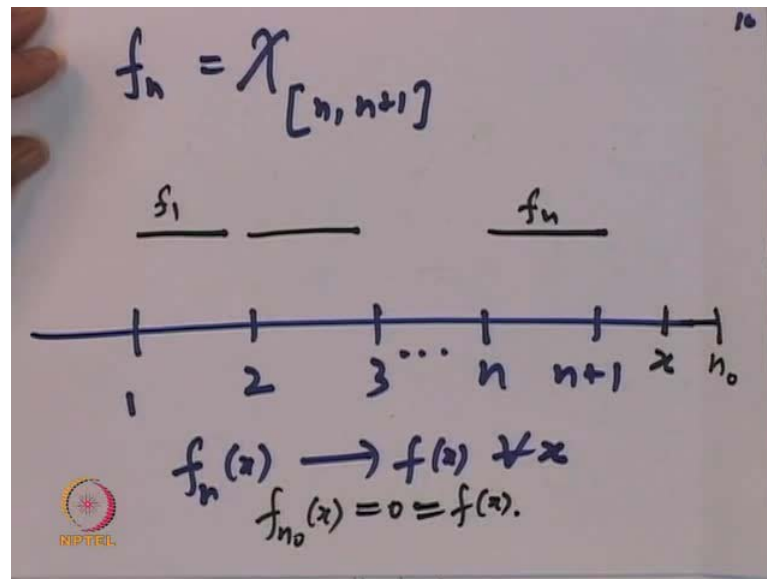 10
fₙ = χ_[n, n+1]
f₁ fₙ
1 2 3 ... n n+1 x n₀
fₙ(x) ⟶ f(x) ∀ x
f_n₀(x) = 0 = f(x).
NPTEL